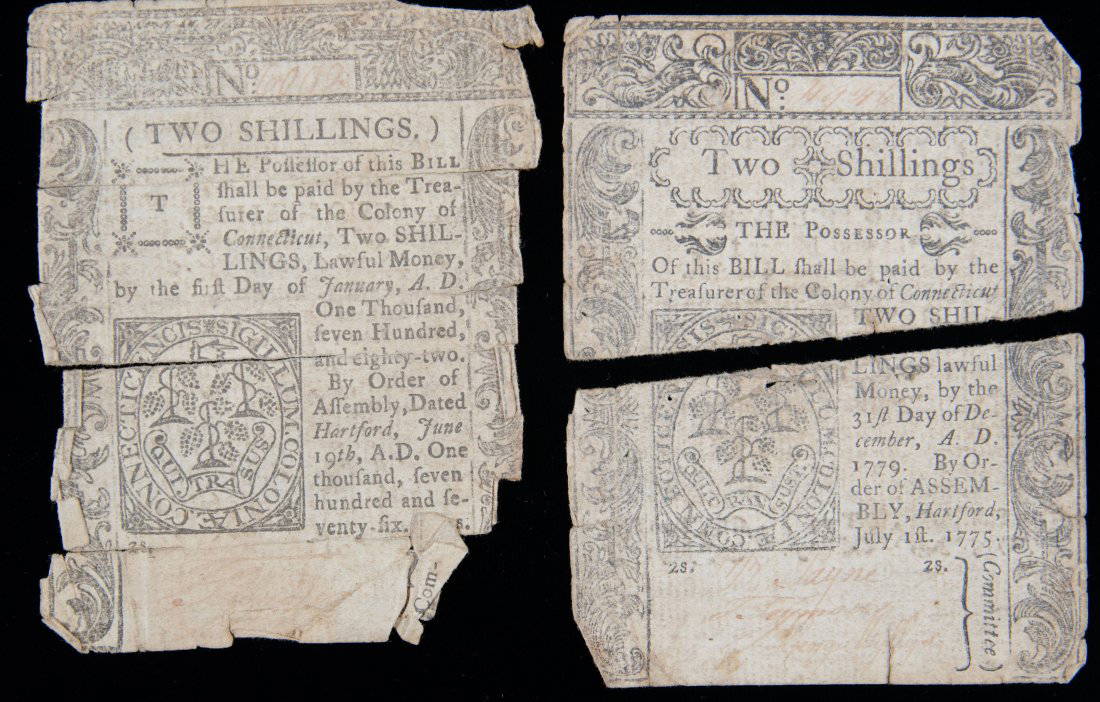 No.
(TWO SHILLINGS.)
THE Poſſeſſor of this BILL
ſhall be paid by the Trea-
ſurer of the Colony of
Connecticut, TWO SHIL-
LINGS, Lawful Money,
by the firſt Day of January, A. D.
One Thouſand,
ſeven Hundred,
and eighty-two.
By Order of
Aſſembly, Dated
Hartford, June
19th, A.D. One
thouſand, ſeven
hundred and ſe-
venty-ſix.
SIGILLUM. COLONIÆ. CONNECTICENCIS
QUI TRA SUS
2s.
s.
Com-
No.
Two Shillings
THE POSSESSOR
Of this BILL ſhall be paid by the
Treaſurer of the Colony of Connecticut
TWO SHIL
LINGS lawful
Money, by the
31ſt Day of De-
cember, A. D.
1779. By Or-
der of ASSEM-
BLY, Hartford,
July 1ſt. 1775.
2s.
2s.
(Committee)